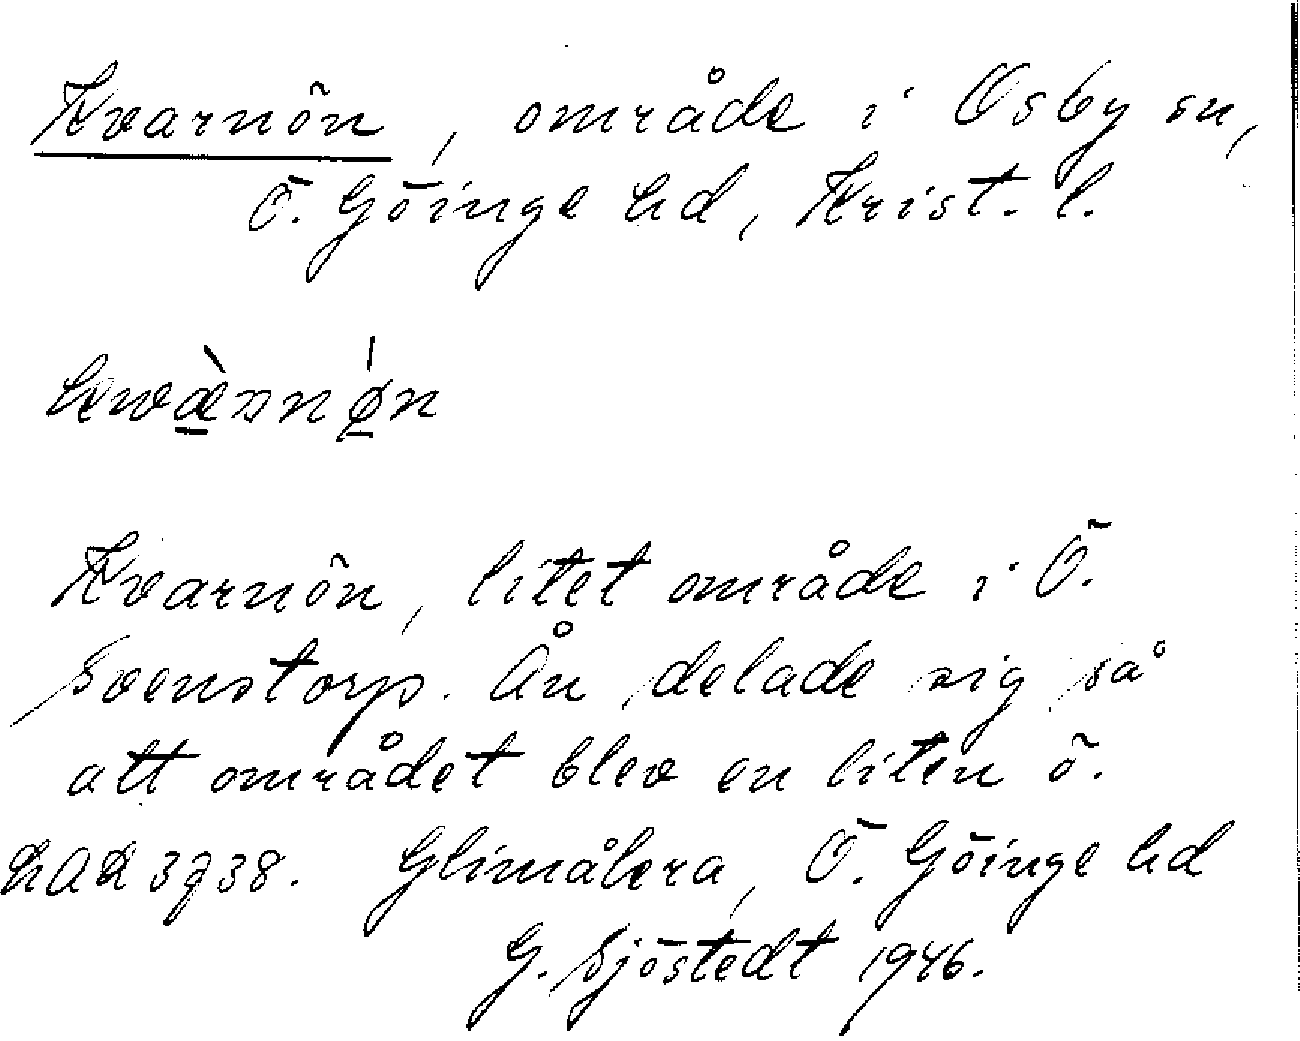 Kvarnön, område i Osby sn,
Ö. Göinge hd, Krist. l.
Kvarnön, litet område i Ö.
Svenstorp. Ån delade sig så
att området blev en liten ö.
3738. Glimåkra, Ö. Göinge hd
G. Sjöstedt 1946.